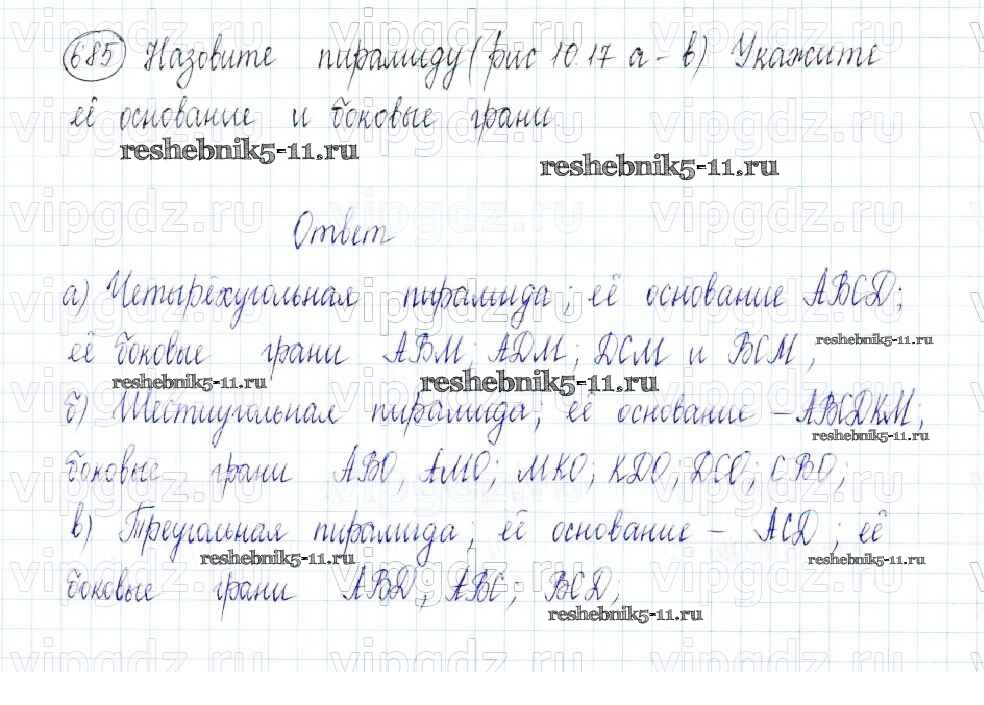 685 Назовите пирамиду (рис 10.17 а - в) Укажите
её основание и боковые грани
reshebnik5-11.ru
reshebnik5-11.ru
Ответ
а) Четырёхугольная пирамида; её основание ABCD;
её боковые грани ABM; ADM; DCM и BCM,
reshebnik5-11.ru
reshebnik5-11.ru
reshebnik5-11.ru
б) Шестиугольная пирамида; её основание - ABCDKM;
reshebnik5-11.ru
боковые грани ABO, AMO; MKO; KDO; DCO; CBO;
в) Треугольная пирамида; её основание - ACD; её
reshebnik5-11.ru
reshebnik5-11.ru
боковые грани ABD; ABC; BCD,
reshebnik5-11.ru
vipgdz.ru vipgdz.ru vipgdz.ru